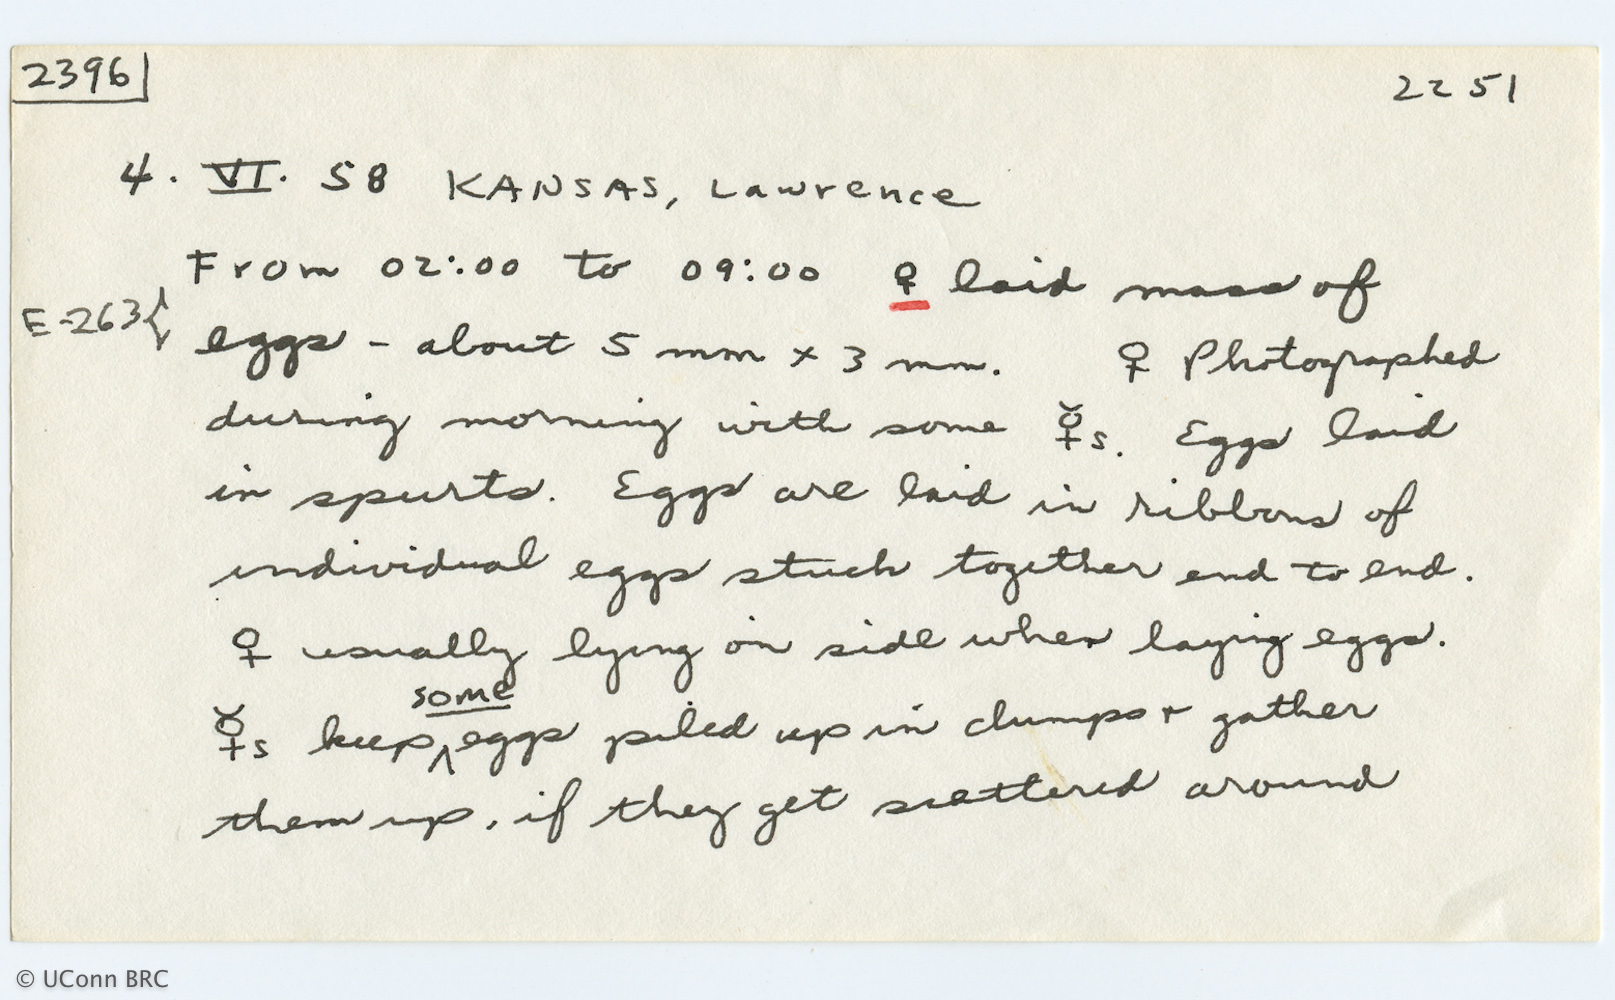 2396 2251
4. VI. 58 KANSAS, Lawrence
From 02:00 to 09:00 ♀ laid mass of
E-263{ eggs - about 5 mm x 3 mm. ♀ Photographed
during morning with some ☿s. Eggs laid
in spurts. Eggs are laid in ribbons of
individual eggs stuck together end to end.
♀ usually lying on side when laying eggs.
some
☿s keep ^ eggs piled up in clumps + gather
them up, if they get scattered around
© UConn BRC